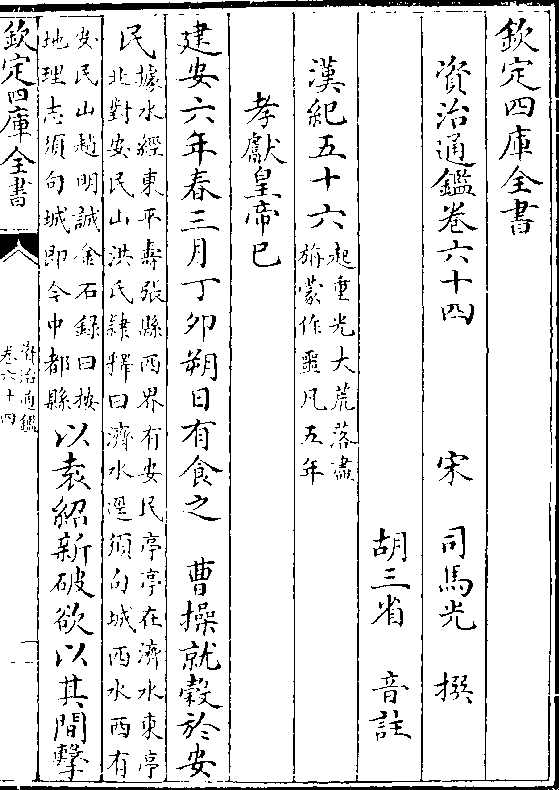 欽定四庫全書
資治通鑑卷六十四　宋　司馬光　撰
胡三省　音註
漢紀五十六
起重光大荒落盡
旃蒙作噩凡五年
孝獻皇帝己
建安六年春三月丁卯朔日有食之　曹操就穀於安
民
據水經東平壽張縣西界有安民亭亭在濟水東亭
北對安民山洪氏隸釋曰濟水逕須句城西水西有
安民山趙明誠金石録曰按
地理志須句城即今中都縣
以袁紹新破欲以其間擊
欽定四庫全書
資治通鑑
卷六十四
一